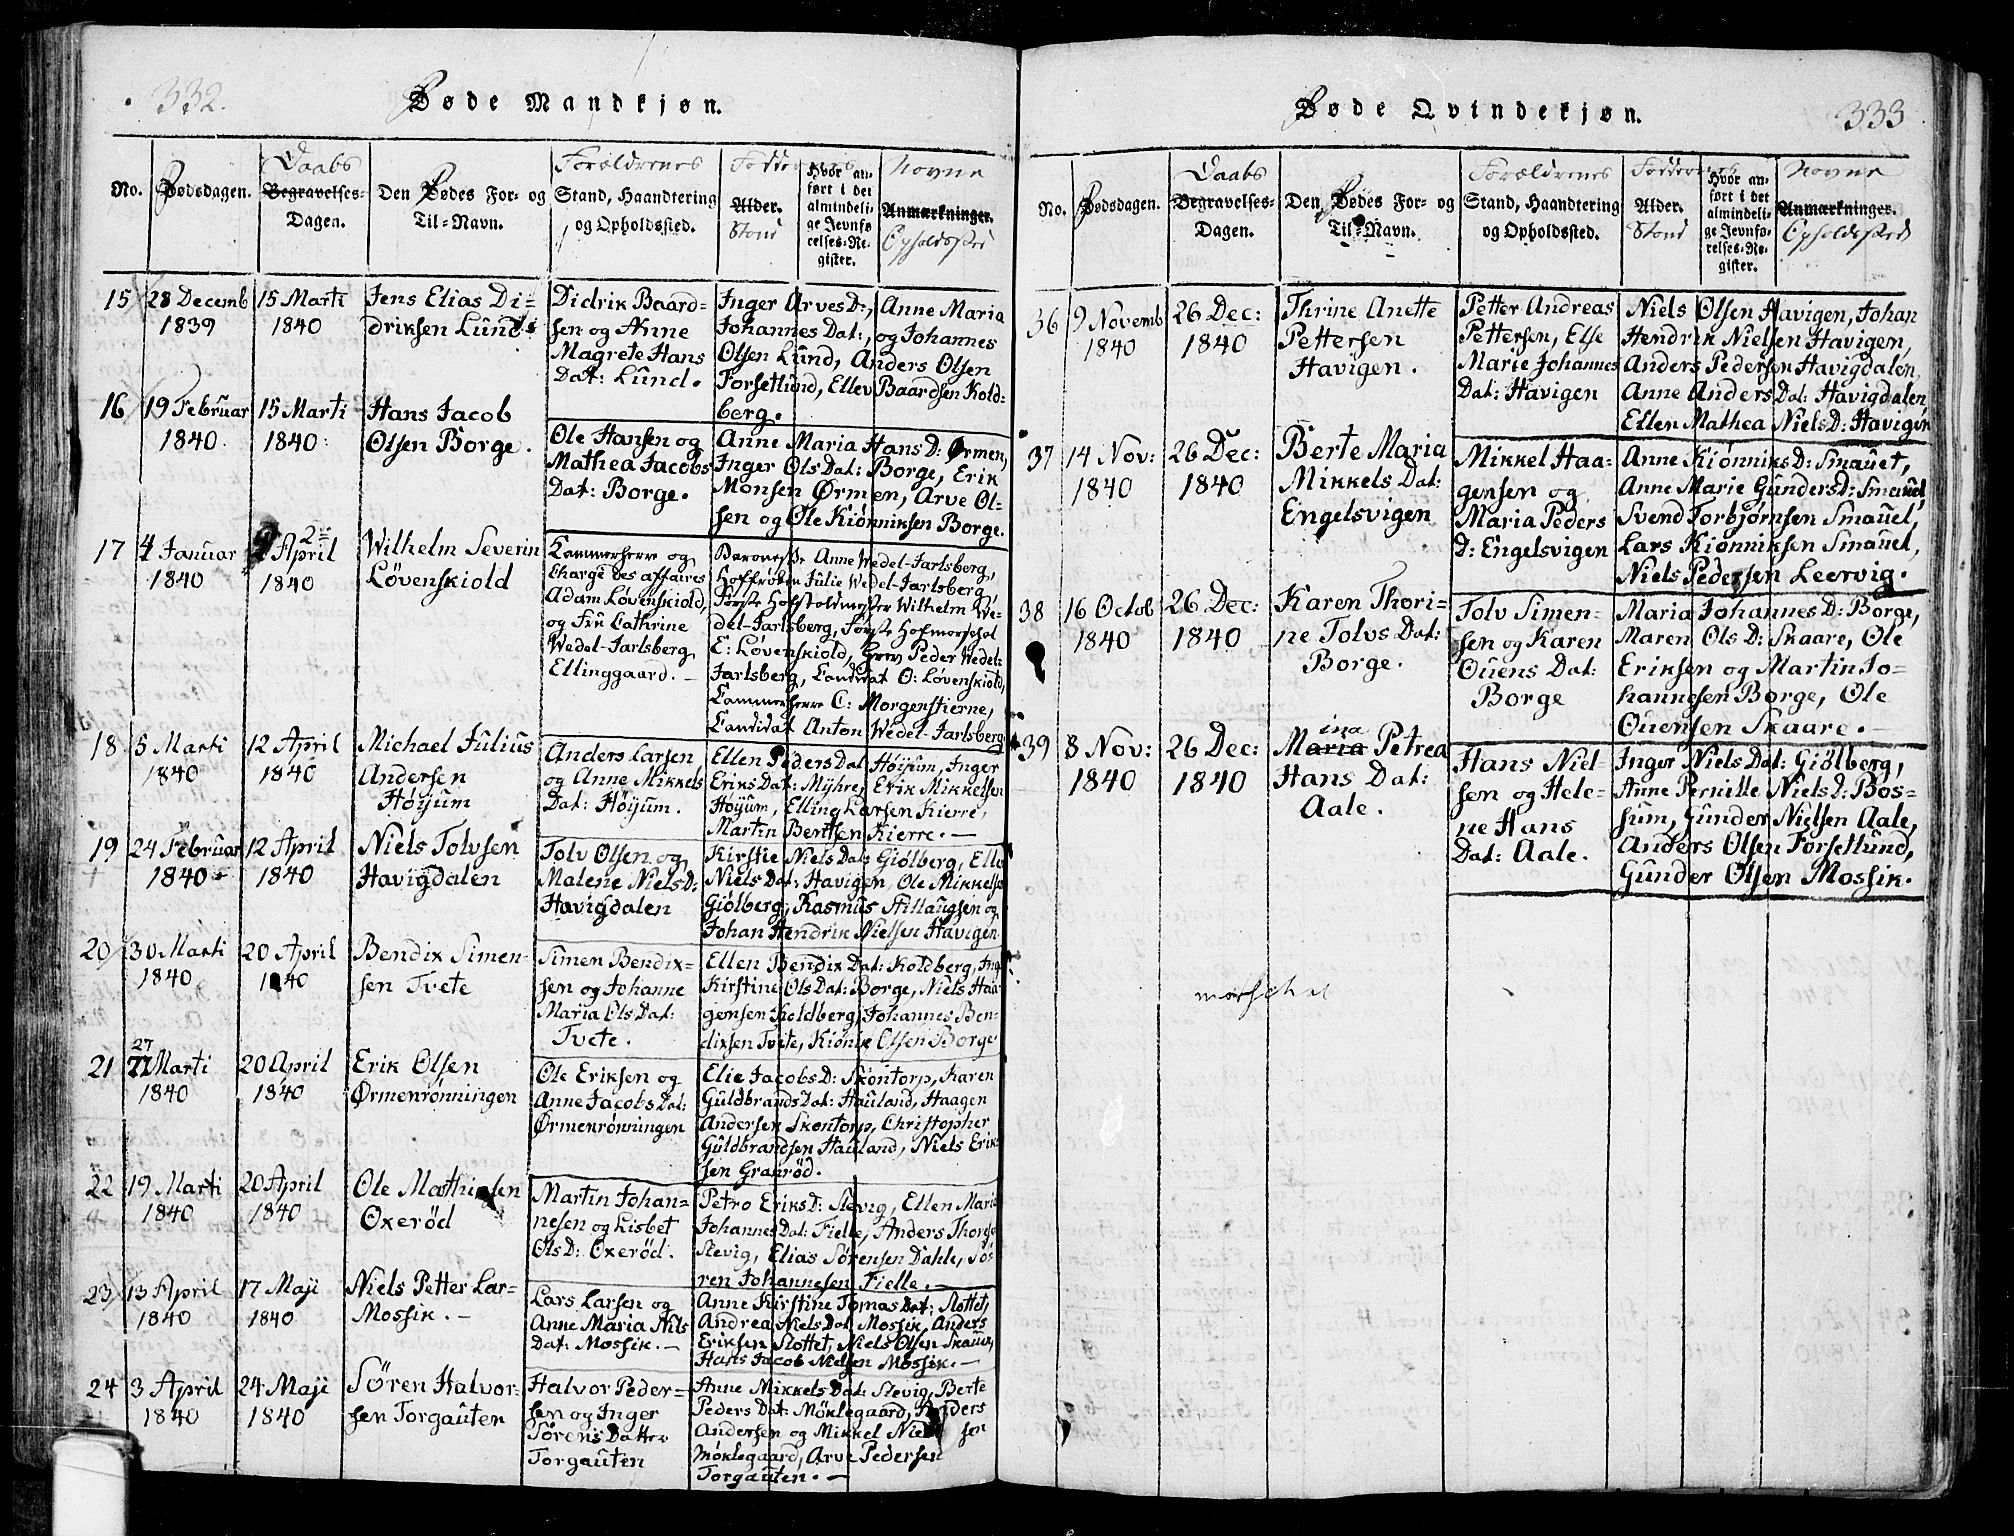 332.
Døde Mandkjøn.
No.
Dødsdagen.
Daabs
Begravelses-
Dagen.
Den Dødes For- og
Til-Navn.
Forældrenes
Stand, Haandtering
og Opholdssted.
Faddernes Navne
Alder.
Stand
Hvor an-
ført i det
almindeli-
ge Jevnfø-
relses-Re-
gister.
Anmærkninger.
Opholdssted
15
28 Decemb
1839
15 Marti
1840
Jens Elias Di-
driksen Lund
Didrik Baard-
sen og Anne
Magrete Hans
Dat: Lund.
Inger ArvesD:, Anne Maria
Johannes Dat:, og Johannes
Olsen Lund, Anders Olsen
Forsetlund, Ellev Baardsen Kold-
berg.
16
19 Februar
1840.
15 Marti
1840:
Hans Jacob
Olsen Borge.
Ole Hansen og
Mathea Jacobs
Dat: Borge.
Anne Maria Hans D: Ørmen,
Inger Ols Dat: Borge, Erik
Monsen Ørmen, Arve Ol-
sen og Ole Kiønniksen Borge.
17
4 Januar
1840
2
April
1840
Wilhelm Severin
Løvenskiold
Kammerherre og
Charge des affaires
Adam Løvenskiold,
og Fru Cathrine
Wedel-Jarlsberg
Ellinggaard. -
Baronesse Anne Wedel-Jarlsberg,
Hoffrøken Julie Wedel-Jarlsberg,
Første Hofstaldmester Wilhelm We-
del-Jarlsberg, Første Hofmarschal
E: Løvenskiold, Grev Peder Wedel-
Jarlsberg, Candidat O: Løvenskiold,
Kammerherre C: Morgenstierne,
Candidat Anton Wedel-Jarlsberg
18
5 Marti
1840
12 April
1840
Michael Julius
Andersen
Høijum
Anders Larsen
og Anne Mikkels
Dat: Høijum.
Ellen Peders Dat Høijum, Inger
Eriks Dat: Myhre, Erik Mikkelsen
Høijum, Elling Larsen Kierre,
Martin Berntsen Kierre. -
19
24 Februar
1840
12 April
1840
Niels Tolvsen
Havigdalen
Tolv Olsen og
Malene Niels D:
Havigdalen
Kirstie Niels Dat: Giølberg, Elle
Niels Dat: Havigen, Ole Mikkelse
Giølberg, Rasmus Stillaugsen og
Johan Hendrik Nielsen Havigen
20
30 Marti
1840
20 April
1840
Bendix Simen-
sen Tvete
Simen Bendix-
sen og Johanne
Maria Ols Dat:
Tvete.
Ellen Bendix Dat: Koldberg, Ing
Kirstine Ols Dat: Borge, Niels Haa-
gensen Koldberg, Johannes Ben-
dixsen Tvete, Kiønik Olsen Borge
21
27
Marti
1840
20 April
1840
Erik Olsen
Ørmenrønningen
Ole Eriksen og
Anne Jacobs Dat:
Ørmenrønningen
Elie Jacobs D: Skontorp, Karen
Guldbrands Dat: Hauland, Haagen
Andersen Skontorp, Christopher
Guldbrandsen Hauland, Niels Erik-
sen Grarød.
22
19 Marti
1840
20 April
1840
Ole Mathisen
Oxerød
Martin Johan-
nesen og Lisbet
Ols D: Oxerød.
Petro Eriks D: Slevig, Ellen Maria
Johannes Dat: Fielle, Anders Thorse
Slevig, Elias Sørensen Dahle, Sø-
ren Johannesen Fielle. -
23
13 April
1840
17 Maji
1840
Niels Petter Lar-
Mossik. -
Lars Larsen og
Anne Maria Nils
Dat: Mossik. -
Anne Kirstine Tomas Dat: Slottet,
Andrea Niels Dat Mossik, Anders
Eriksen Slottet, Niels Olsen Skauen,
Hans Jacob Nielsen Mossik. -
24
3 April
1840
24 Maji
1840
Søren Halvor-
sen Torgauten
Halvor Peder-
sen og Inger
Sørens Datter
Torgauten
Anne Mikkels Dat: Slevig, Berte
Peders Dat: Møklegaard, Anders
Andersen og Mikkel Niel sen
Møklegaard, Arve Pedersen
Torgauten. -
333
Døde Qvindekjøn.
No.
Dødsdagen.
Daabs
Begravelses-
Dagen.
Den Dødes For- og
Til-Navn.
Forældrenes
Stand, Haandtering
og Opholdssted.
Faddernes Navne
Alder.
Stand
Hvor an-
ført i det
almindeli-
ge Jevnfø-
relses-Re-
gister.
Anmærkninger.
Opholdssted
36
9 Novemb
1840
26 Dec:
1840
Thrine Anette
Pettersen
Havigen.
Petter Andreas
Pettersen, Else
Marie Johannes
Dat: Havigen
Niels Olsen Havigen, Johan
Hendrik Nielsen Havigen,
Anders Pedersen Havigdalen,
Anne Anders Dat: Havigdalen,
Ellen Mathea Niels D: Havigen
37
14 Nov:
1840
26 Dec:
1840
Berte Maria
Mikkels Dat:
Engelsvigen
Mikkel Haa-
gensen og
Maria Peders
D: Engelsvigen
Anne Kiønniks D: Smauet,
Anne Marie Gunders D: Smauet,
Svend Torbjørnsen Smauet,
Lars Kiønniksen Smauet,
Niels Pedersen Leervig.
38
16 Octob
1840
26 Dec:
1840
Karen Thori-
ne Tolvs Dat:
Borge.
Tolv Simen-
sen og Karen
Ouens Dat:
Borge
Maria Johannes D: Borge,
Maren Ols D: Skaare, Ole
Eriksen og Martin Jo-
hannesen Borge, Ole
Ouensen Skaare. -
39
8 Nov:
1840
26 Dec:
1840
ina
Maria Petrea
Hans Dat:
Aale.
Hans Niel-
sen og Hele-
ne Hans
Dat: Aale.
Inger Niels Dat: Giølberg,
Anne Pernille Niels D: Bos-
sum, Gunder Nielsen Aale,
Anders Olsen Forsetlund,
Gunder Olsen Mossik.
marschal